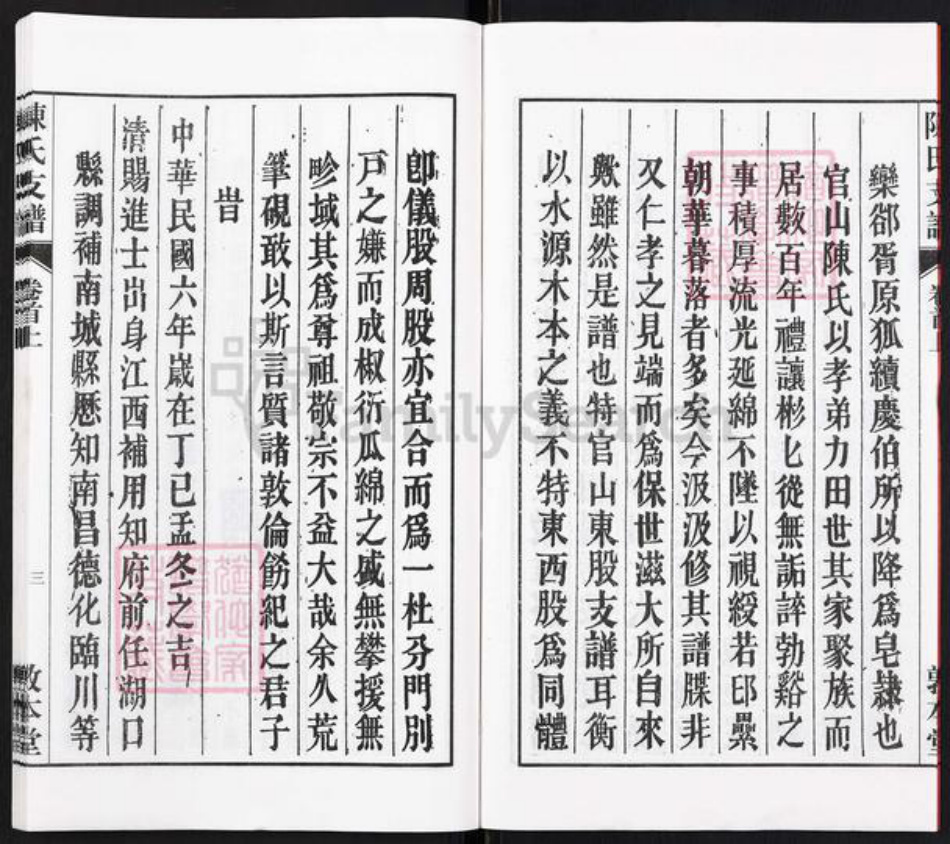 欒郤胥原狐續慶伯所以降爲皂隸也
官山陳氏以孝弟力田世其家聚族而
居數百年禮讓彬匕從無詬誶勃谿之
事積厚流光延綿不墜以視綬若印纍
朝華暮落者多矣今汲汲修其譜牒非
又仁孝之見端而爲保世滋大所自來
歟雖然是譜也特官山東股支譜耳衡
以水源木本之義不特東西股爲同體
卽儀股周股亦宜合而爲一杜分門別
戸之嫌而成椒衍瓜綿之盛無攀援無
畛域其爲尊祖敬宗不益大哉余久荒
筆硯敢以斯言質諸敦倫飭紀之君子
旹
中華民國六年嵗在丁巳孟冬之吉
清賜進士出身江西補用知府前任湖口
縣調補南城縣歷知南昌德化臨川等
陳氏支譜
卷首上
三
敦本堂
FamilySearch